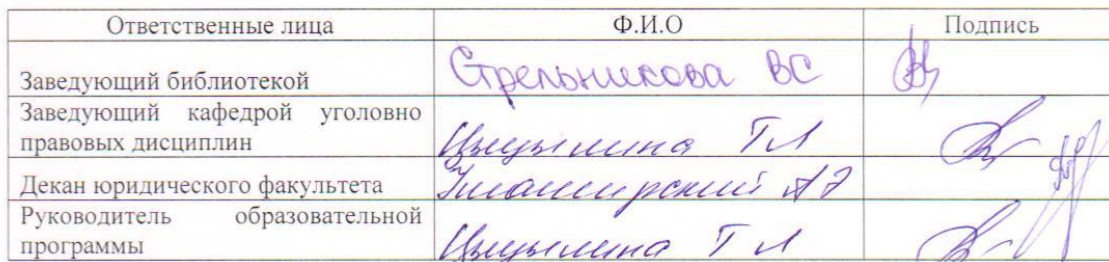 Ответственные лица Ф.И.О Подпись
Заведующий библиотекой Стрельникова ВС
Заведующий кафедрой уголовно
правовых дисциплин Т Л
Декан юридического факультета
Руководитель образовательной
программы Т Л